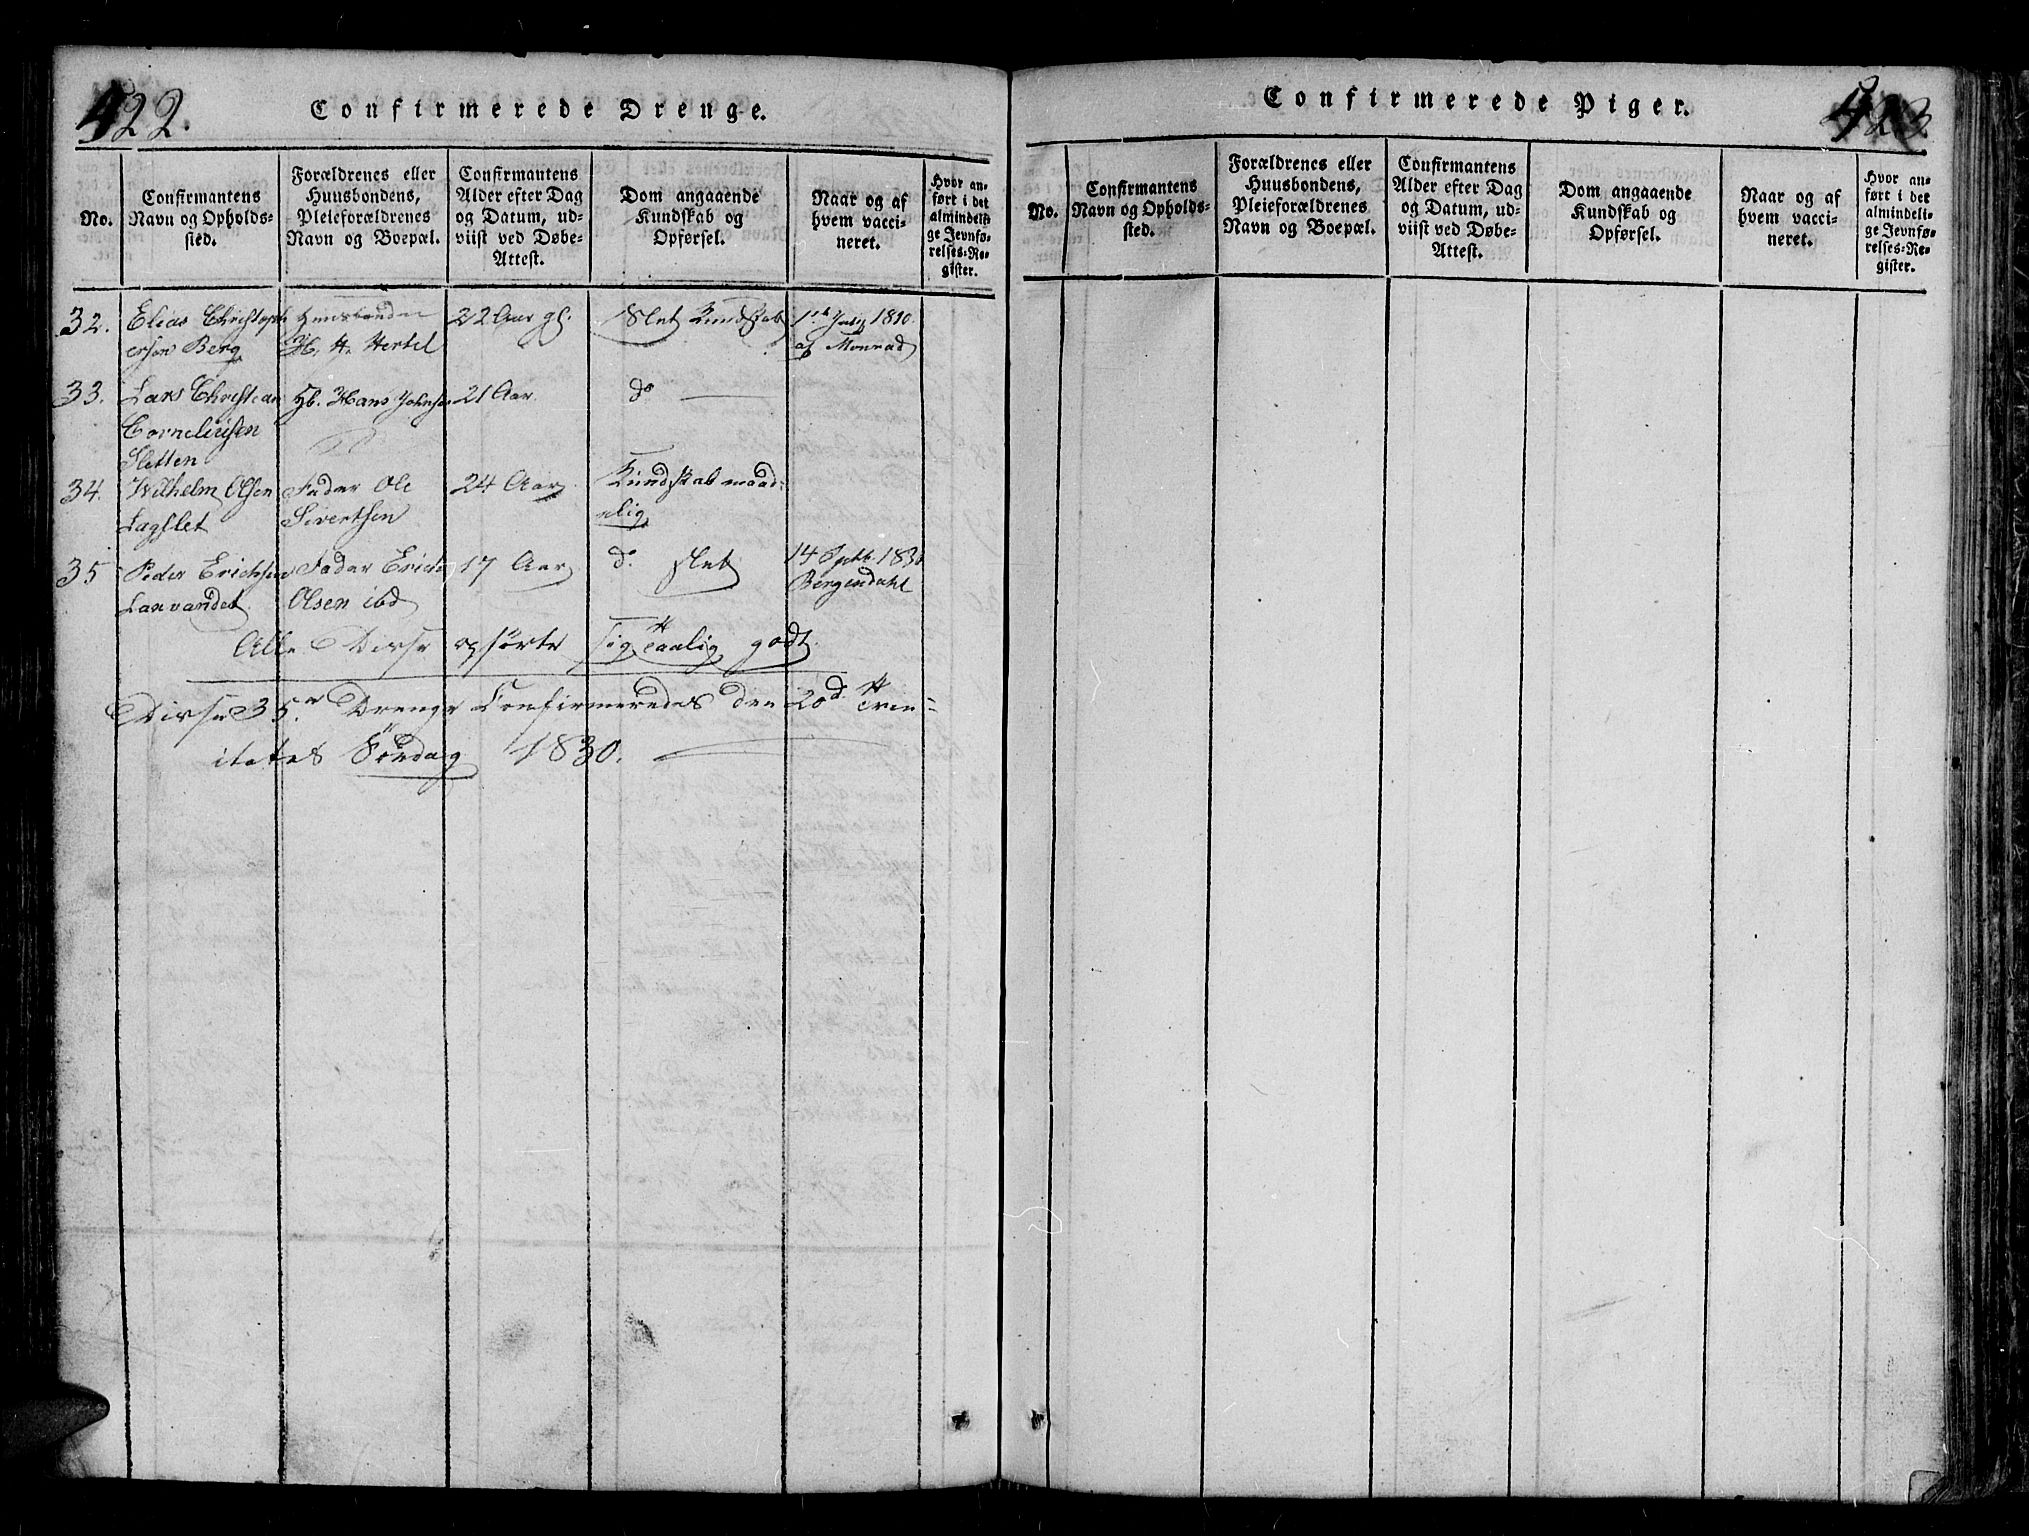 422.
Confirmerede Drenge.
No.
Confirmantens
Navn og Opholds-
sted.
Forældrenes eller
Huusbondens,
Pleieforældrenes
Navn og Boepæl.
Confirmantens
Alder efter Dag
og Datum, ud-
viist ved Døbe-
Attest.
Dom angaaende
Kundskab og
Opførsel.
Naar og af
hvem vacci-
neret.
Hvor an-
ført i det
almindeli-
ge Jevnfø-
relses-Re-
gister.
32. Elias Christoph Huusbonden 22 Aar gl. Slet Kundskab 1ste July 1810.
ersen Berg H. H. Hertel af Monrad
33. Lars Christian Hb. Hans Johnsen 21 Aar. do
Corneliusen
Sletten
34. Wilhelm Olsen Fader Ole 24 Aar Kundskab maad-
Lagslet Sivertsen elig
35 Peder Erichsen Fader Erich 17 Aar do slet 14 Septb. 1830
Lanvandet Olsen ibd Bergendahl
Alle Disse opførte sig taalig godt.
Disse 35 Drenge Confirmeredes den 20d Trin-
itates Søndag 1830.
423
Confirmerede Piger.
No.
Confirmantens
Navn og Opholds-
sted.
Forældrenes eller
Huusbondens,
Pleieforældrenes
Navn og Boepæl.
Confirmantens
Alder efter Dag
og Datum, ud-
viist ved Døbe-
Attest.
Dom angaaende
Kundskab og
Opførsel.
Naar og af
hvem vacci-
neret.
Hvor an-
ført i det
almindeli-
ge Jevnfø-
relses-Re-
gister.